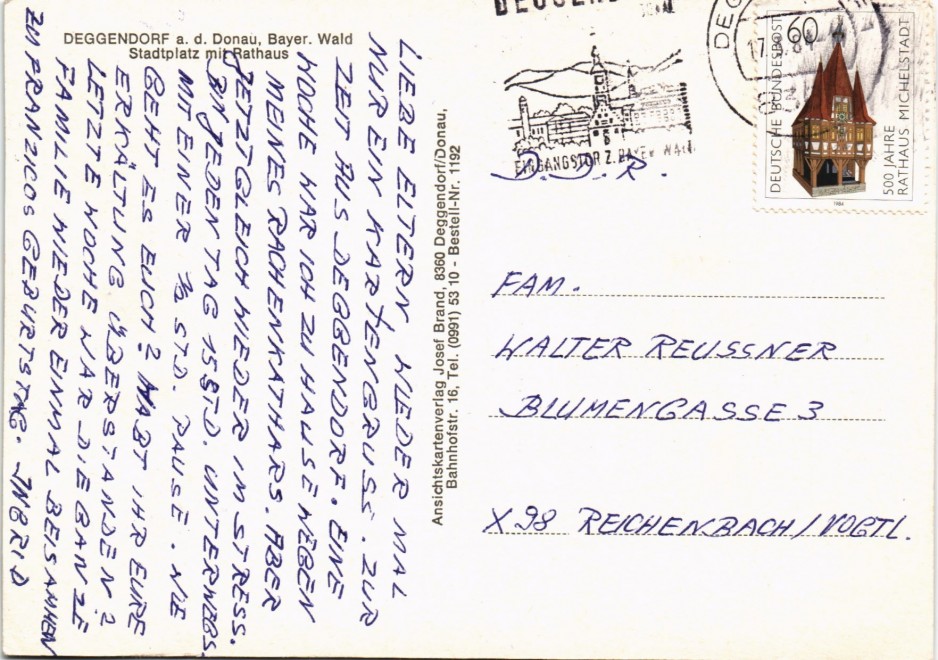 DEGGENDORF a. d. Donau, Bayer. Wald
Stadtplatz mit Rathaus
LIEBE ELTERN, WIEDER MAL
NUR EIN KARTENGRUSS. ZUR
ZEIT AUS DEGGENDORF. EINE
WOCHE WAR ICH ZU HAUSE WEGEN
MEINES RACHENKATHARS. ABER
JETZT GLEICH WIEDER IM STRESS.
BIN JEDEN TAG 15 STD. UNTERWEGS.
MIT EINER ½ STD. PAUSE. WIE
GEHT ES EUCH? HABT IHR EURE
ERKÄLTUNG ÜBERSTANDEN?
LETZTE WOCHE WAR DIE GANZE
FAMLIE WIEDER EINMAL BEISAMMEN
ZU FRANZICOS GEBURTSTAG. INGRID
Ansichtskartenverlag Josef Brand, 8360 Deggendorf/Donau,
Bahnhofstr. 16, Tel. (0991) 53 10 - Bestell-Nr. 1192
EINGANGSTOR Z. BAYER. WALD
DEUTSCHE BUNDESPOST
60
500 JAHRE
RATHAUS MICHELSTADT
1984
D.D.R.
FAM.
WALTER REUSSNER
BLUMENGASSE 3
X98 REICHENBACH/VOGTL.